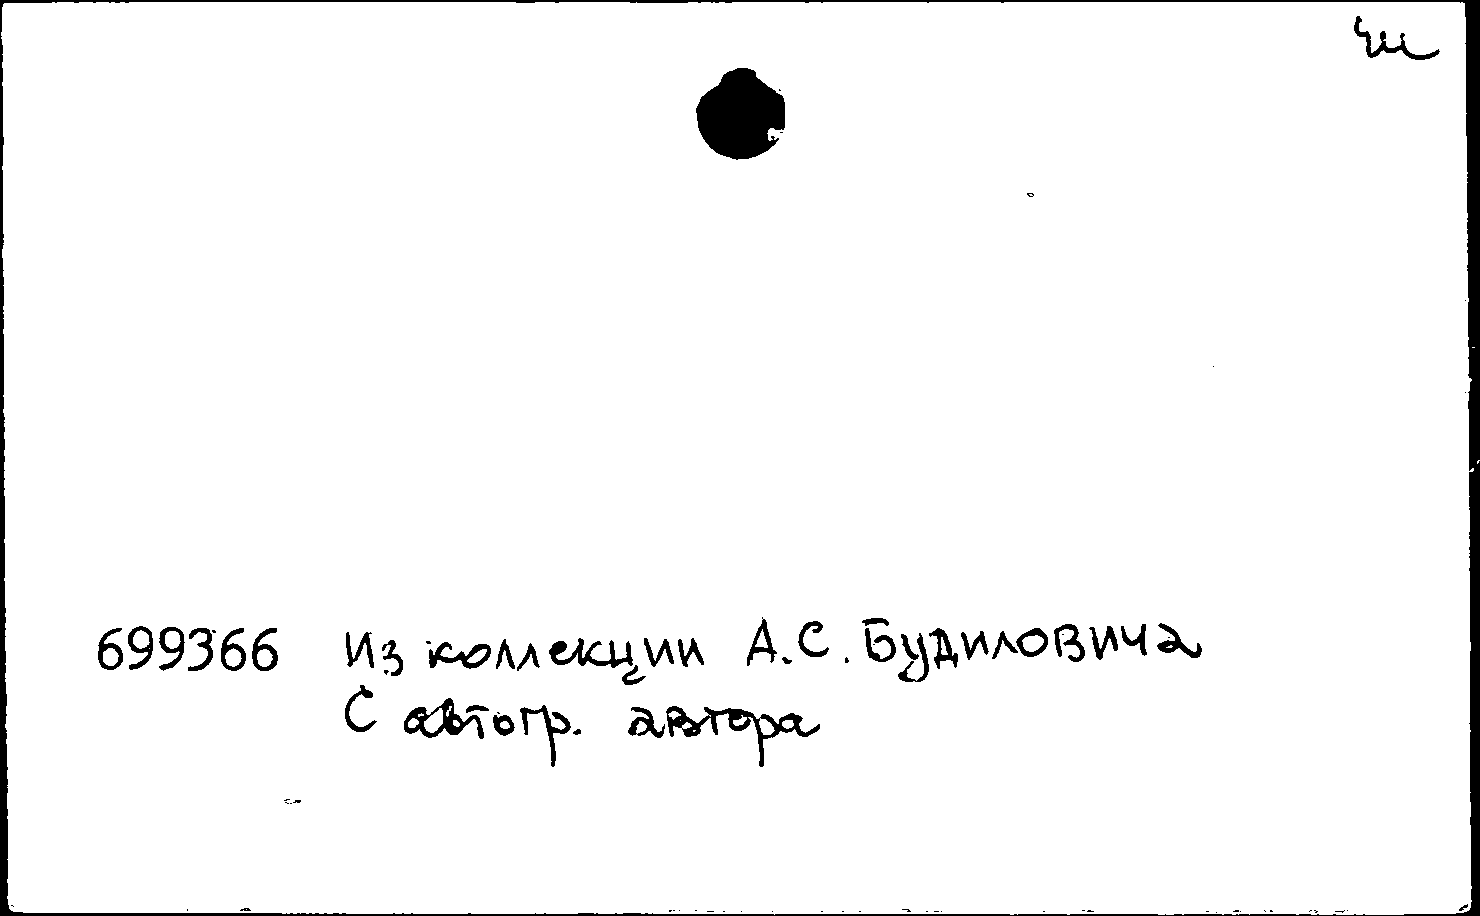 699366 Из коллекции А.С. Будиловича
С автогр. автора